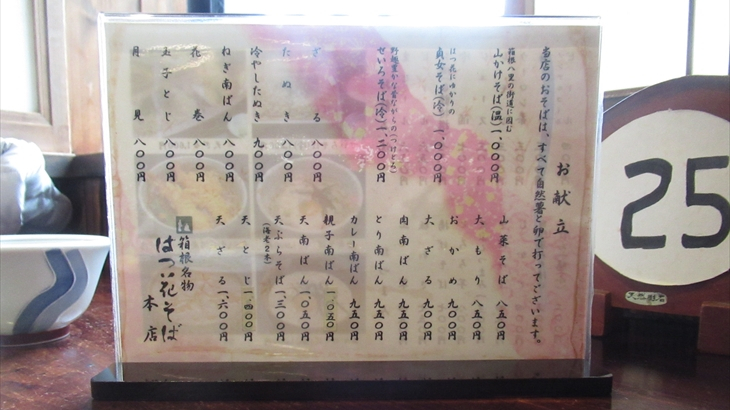 お献立
当店のおそばは、すべて自然薯と卵で打ってございます。
箱根八里の街道に因む
山かけそば(温)一、〇〇〇円
はつ花にゆかりの
貞女そば(冷)一、〇〇〇円
野趣豊かな昔ながらの(つけとろ)
せいろそば(冷)一、二〇〇円
ざる 八〇〇円
たぬき 八〇〇円
冷やしたぬき 九〇〇円
ねぎ南ばん 八〇〇円
花巻 八〇〇円
玉子とじ 八〇〇円
月見 八〇〇円
山菜そば 八五〇円
大もり 八五〇円
おかめ 九〇〇円
大ざる 九〇〇円
肉南ばん 九五〇円
とり南ばん 九五〇円
カレー南ばん 九五〇円
親子南ばん 一、〇五〇円
天南ばん 一、〇五〇円
天ぷらそば 一、三〇〇円
(海老2本)
天とじ 一、四〇〇円
天ざる 一、六〇〇円
箱根名物
はつ花そば
本店
25